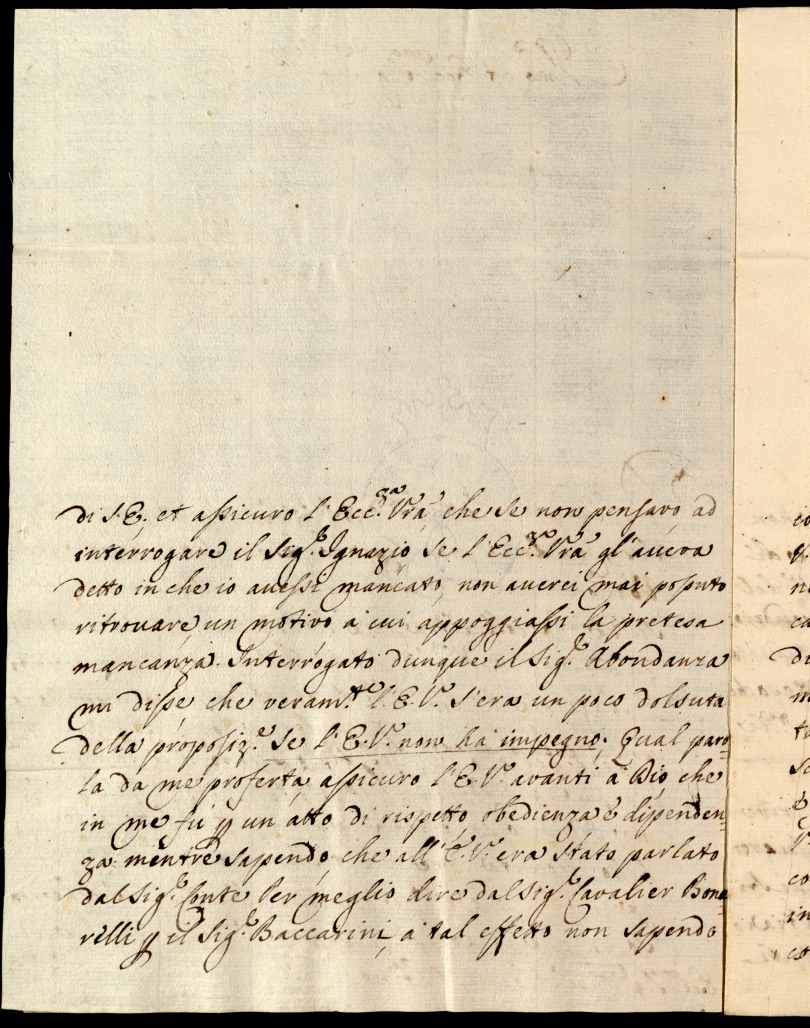 di S. E. et assicuro l'Ecc.za Vrã che se non pensavo ad
interrogare il Sig.e Ignazio se l'Ecc.za Vrã gl'aueva
detto in che io auessi mancato, non auerei mai possuto
ritrouare un motivo a cui appoggiassi la pretesa
mancanza. Interrogato dunque il Sig.e Abondanza
mi disse che veram.te l'E. V.a s'era un poco dolsuta
della proposiz.e se l'E. V.a non ha impegno. Qual paro
la da me proferta, assicuro l'E. V.a avanti à Dio che
in me fù p un atto di rispetto obedienza è dipenden
za mentre sapendo, che all'E. V.a era stato parlato
dal Sig.e Conte Per meglio dire dal Sig.e Cavalier Bona
relli p il Sig.e Baccarini, à tal effetto non sapendo